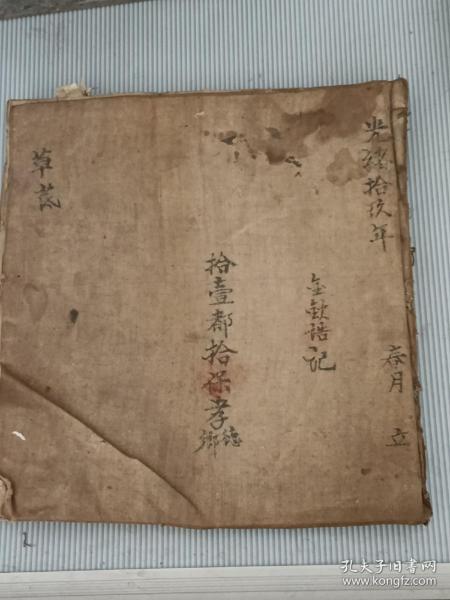 光緒拾玖年
春月 立
金欽語記
拾壹都拾保孝德鄉
草蓝
孔夫子旧书网
www.kongfz.com